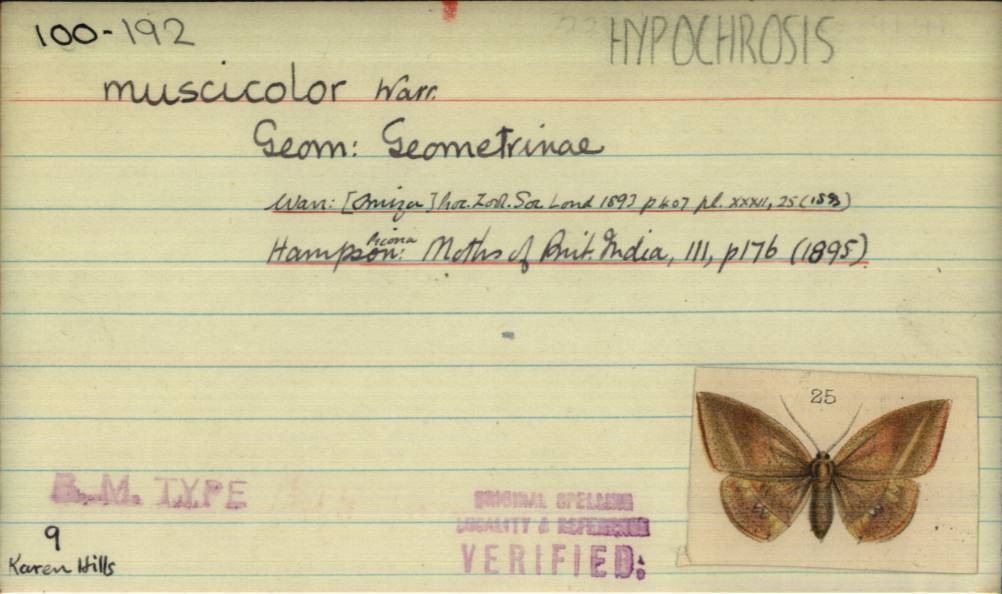 100-192
HYPOCHROSIS
muscicolor Warr.
Geom: Geometrinae
Warr: [Omiza] Proc. Zool. Soc. Lond 1893 p407 pl. XXXII, 25 (1893)
Hampson: Moths of Brit. India, III, p176 (1895)
25
B.M. TYPE
ORIGINAL SPELLING
LOCALITY & REFERENCE
VERIFIED:
♀
Karen Hills